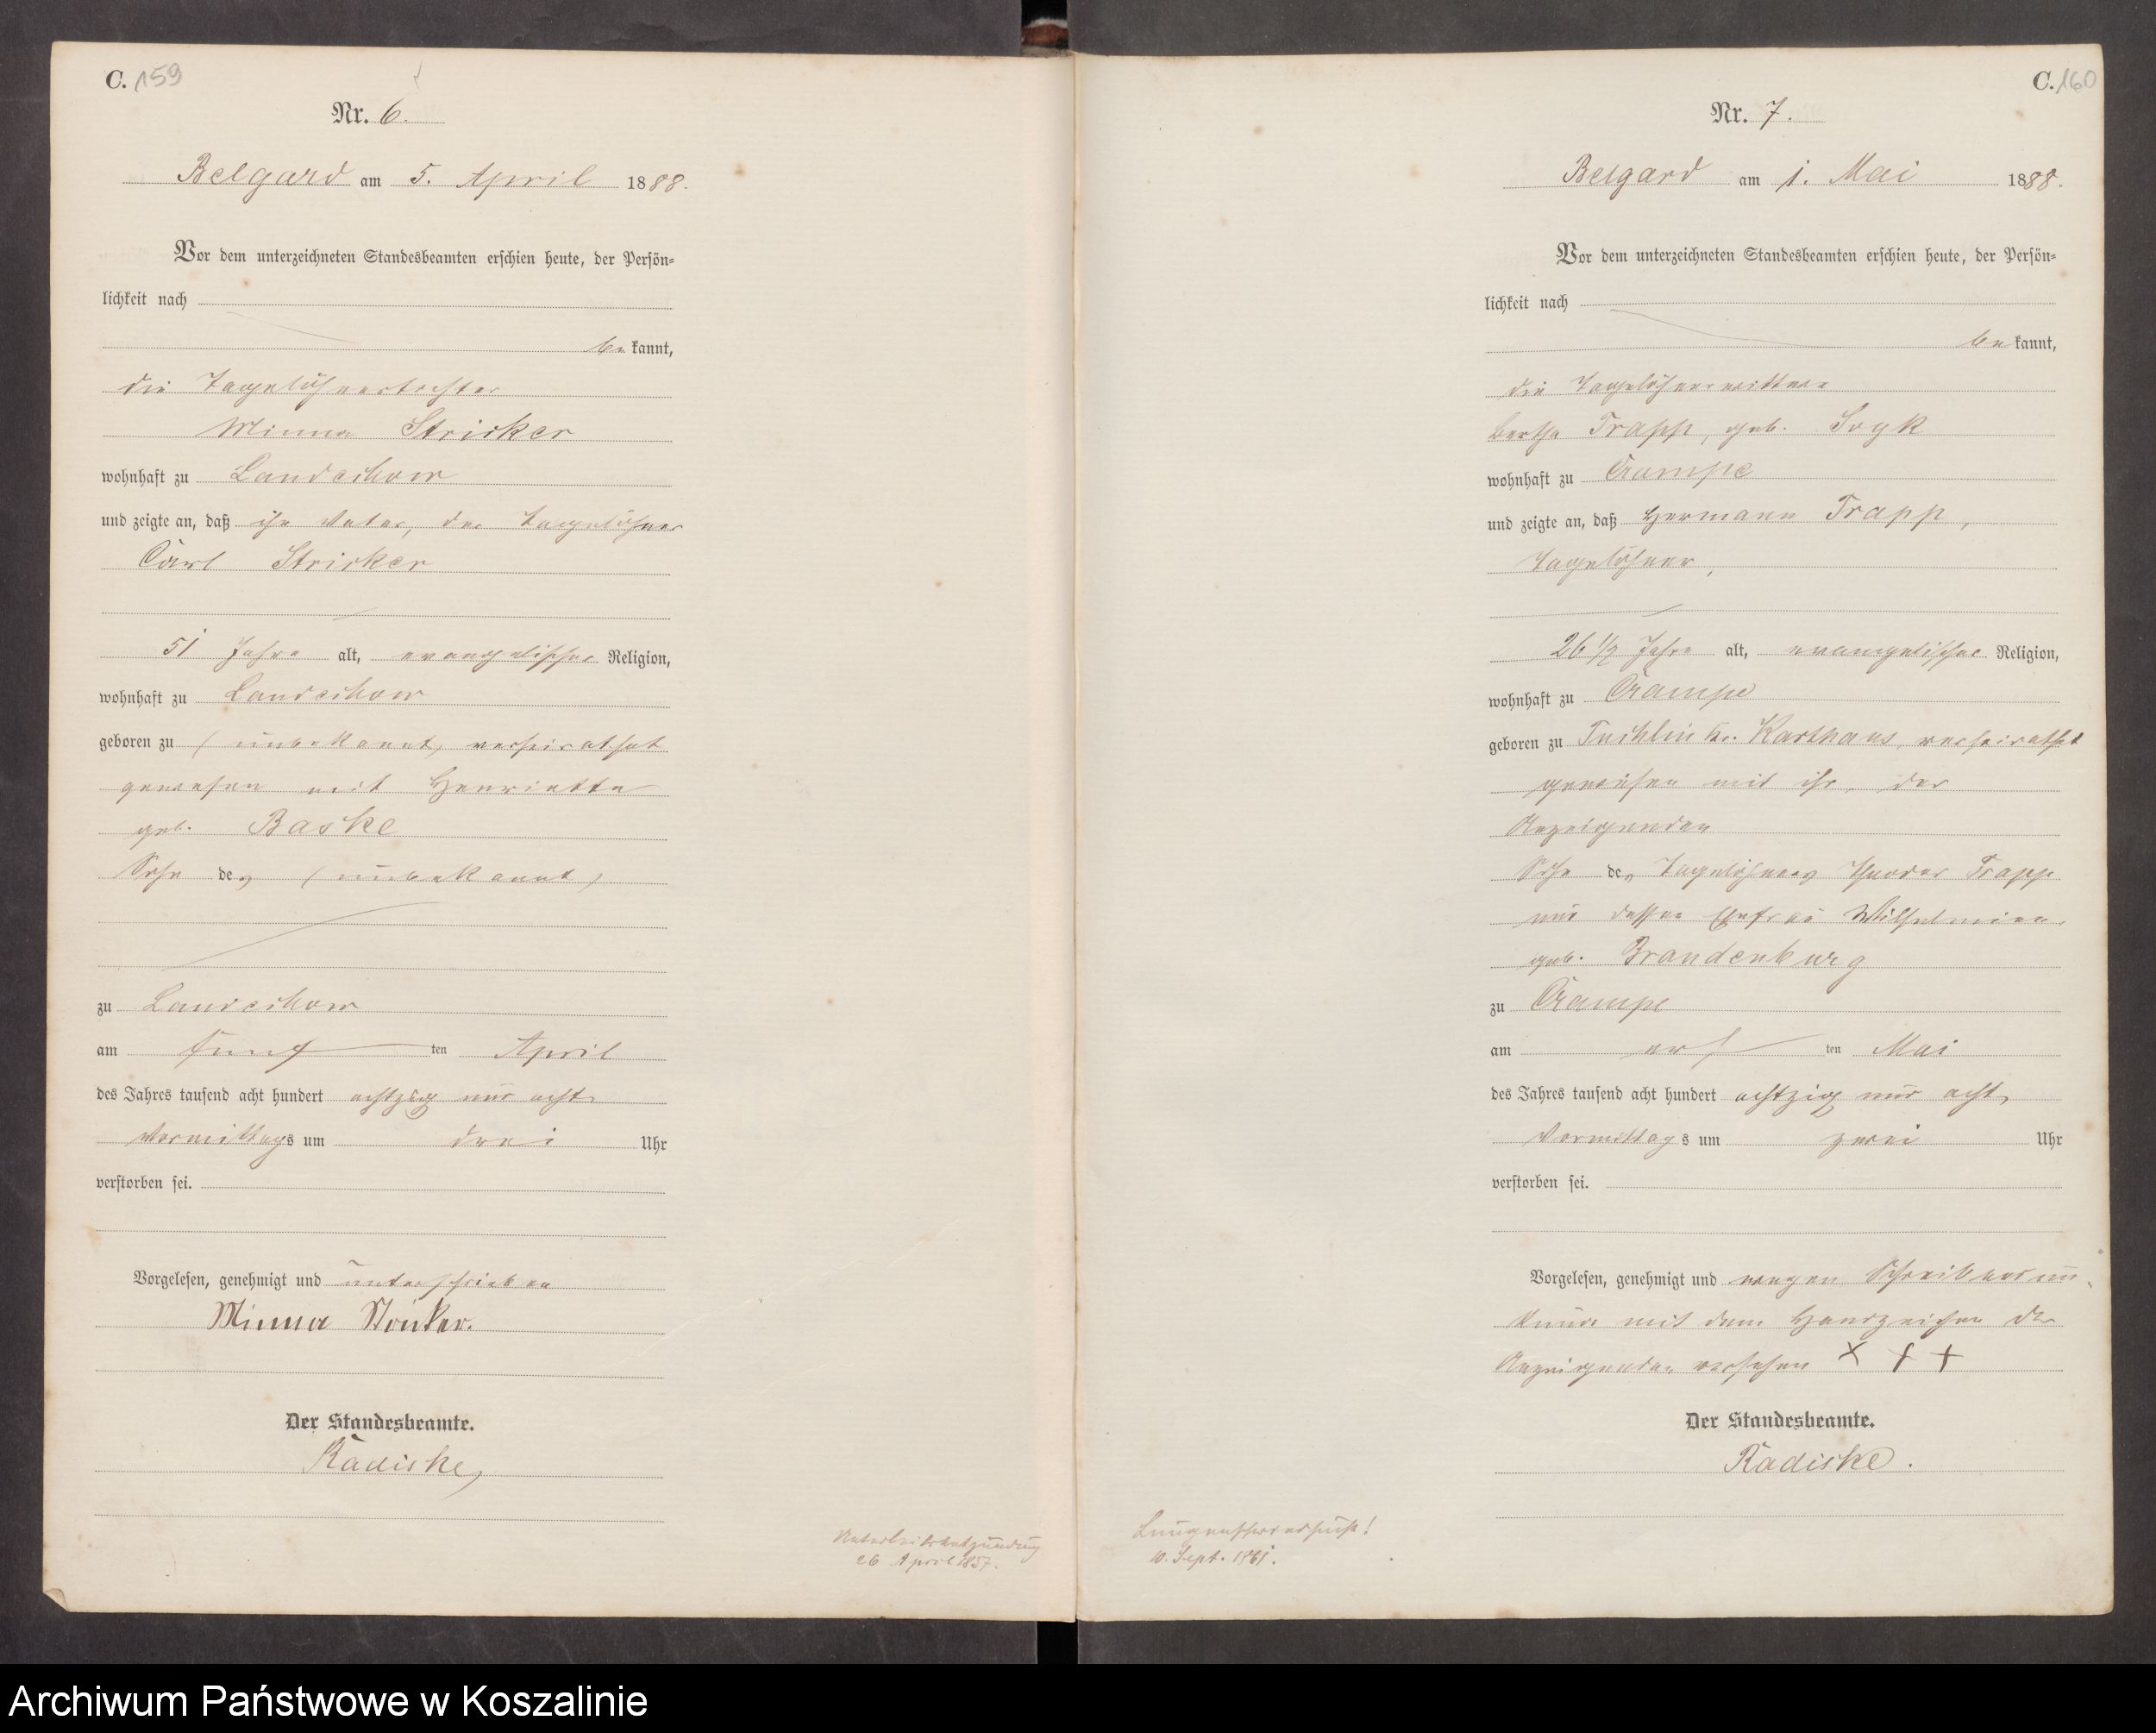 C. 159
Nr. 6.
Belgard am 5. April 1888.
Vor dem unterzeichneten Standesbeamten erschien heute, der Persön=
lichkeit nach
bekannt,
die Tagelöhnertochter
Minna Stricker
wohnhaft zu Landechow
und zeigte an, daß ihr Vater, der Tagelöhner
Carl Stricker
51 Jahre alt, evangelischer Religion,
wohnhaft zu Landechow
geboren zu (unbekannt, verheirathet
gewesen mit Henriette
geb. Baske
Sohn des (unbekannt)
zu Landechow
am fünften April
des Jahres tausend acht hundert achtzig und acht
Vormittags um drei Uhr
verstorben sei.
Vorgelesen, genehmigt und unterschrieben
Minna Stricker.
Der Standesbeamte.
Radiske
Unterleibsentzündung
26 April 1837.
C. 160
Nr. 7.
Belgard am 1. Mai 1888.
Vor dem unterzeichneten Standesbeamten erschien heute, der Persön=
lichkeit nach
bekannt,
die Tagelöhnerwittwe
Bertha Trapp, geb.
wohnhaft zu Crampe
und zeigte an, daß Hermann Trapp,
Tagelöhner,
26 1/2 Jahre alt, evangelischer Religion,
wohnhaft zu Crampe
geboren zu Tuchlin Kr. Karthaus, verheirathet
gewesen mit ihr, der
Anzeigenden
Sohn des Tagelöhners Theodor Trapp
und dessen Ehefrau Wilhelmine
geb. Brandenburg
zu Crampe
am ersten Mai
des Jahres tausend acht hundert achtzig und acht
Vormittags um zwei Uhr
verstorben sei.
Vorgelesen, genehmigt und wegen Schreibensun-
kunde mit dem Handzeichen der
Anzeigenden versehen X X X
Der Standesbeamte.
Radiske.
Lungenschwindsucht!
10. Sept. 1861.
Archiwum Państwowe w Koszalinie